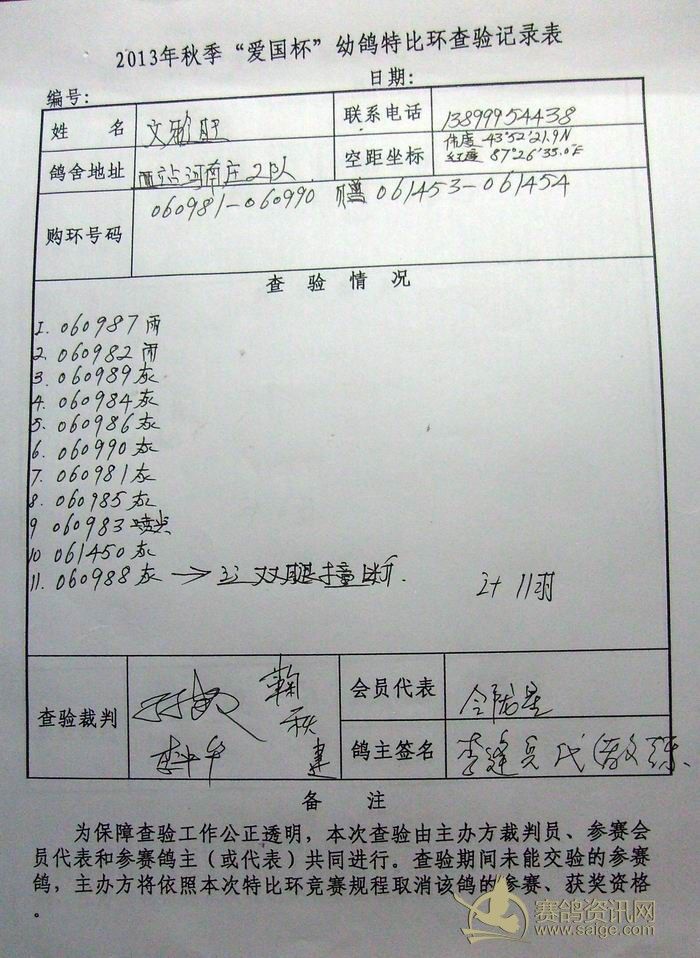 2013年秋季“爱国杯”幼鸽特比环查验记录表
编号： 日期：
姓 名 文 旺 联系电话 13899954438
鸽舍地址 西站河南庄2队 空距坐标 伟度 43°52'21.9N
红度 87°26'35.0E
购环号码 060981-060990 赠 061453-061454
查 验 情 况
1. 060987 雨
2. 060982 雨
3. 060989 灰
4. 060984 灰
5. 060986 灰
6. 060990 灰
7. 060981 灰
8. 060985 灰
9 060983 喷点
10 061450 灰
11. 060988 灰 → 双腿撞断.
计 11羽
查验裁判 鞠秋建 会员代表
鸽主签名 李 代
备 注
为保障查验工作公正透明，本次查验由主办方裁判员、参赛会
员代表和参赛鸽主（或代表）共同进行。查验期间未能交验的参赛
鸽，主办方将依照本次特比环竞赛规程取消该鸽的参赛、获奖资格
。
赛鸽资讯网
www.saige.com